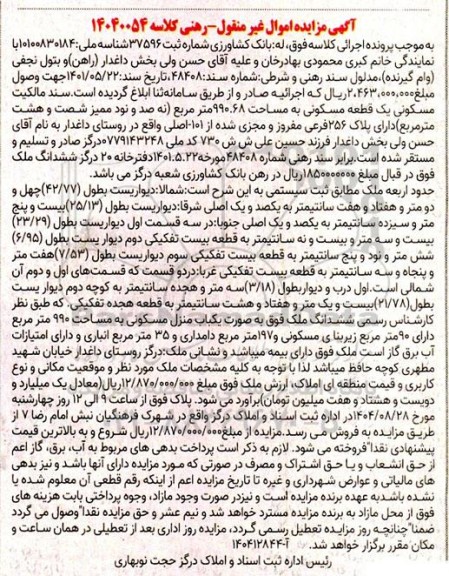 آگهی مزایده اموال غیر منقول-رهنی کلاسه ۱۴۰۴۰۰۵۴
به موجب پرونده اجرائی کلاسه فوق، له: بانک کشاورزی شماره ثبت ۳۷۵۹۶ شناسه ملی: ۱۰۱۰۰۸۳۰۱۸۴ با
نمایندگی خانم کبری محمودی بهادرخان و علیه آقای حسن ولی بخش داغدار (راهن) و بتول نجفی
(وام گیرنده)، مدلول سند رهنی و شرطی: شماره سند: ۴۸۴۰۸، تاریخ سند: ۱۴۰۱/۰۵/۲۲ جهت وصول
مبلغ ۲،۴۶۳،۰۰۰،۰۰۰ ریال، که اجرائیه صادر و از طریق سامانه ثنا ابلاغ گردیده است. سند مالکیت
مسکونی یک قطعه مسکونی به مساحت ۹۹۰.۶۸ متر مربع (نه صد و نود ممیز شصت و هشت
مترمربع) دارای پلاک ۲۵۶ فرعی مفروز و مجزی شده از ۱۰۱-اصلی واقع در روستای داغدار به نام آقای
حسن ولی بخش داغدار فرزند حسین علی ش ش ۷۳۰ کد ملی ۰۷۷۹۱۴۳۲۴۸ درگز صادر و تسلیم و
مستقر شده است. برابر سند رهنی شماره ۴۸۴۰۸ مورخه ۱۴۰۱.۵.۲۲ دفترخانه ۲۰ درگز ششدانگ ملک
فوق در قبال مبلغ ۱۸۵۰۰۰۰۰۰۰ ریال در رهن بانک کشاورزی شعبه درگز می باشد.
حدود اربعه ملک مطابق ثبت سیستمی به این شرح است: شمالا: دیواریست بطول (۴۲/۷۷) چهل و
دو متر و هفتاد و هفت سانتیمتر به یکصد و یک اصلی شرقا: دیواریست بطول (۲۵/۱۳) بیست و پنج
متر و سیزده سانتیمتر به یکصد و یک اصلی جنوبا: در سه قسمت اول دیواریست بطول (۲۳/۲۹)
بیست و سه متر و بیست و نه سانتیمتر به قطعه بیست تفکیکی دوم دیوار یست بطول (۶/۹۵)
شش متر و نود و پنج سانتیمتر به قطعه بیست تفکیکی سوم دیواریست بطول (۷/۵۳) هفت متر
و پنجاه و سه سانتیمتر به قطعه بیست تفکیکی غربا: دردو قسمت که قسمت‌های اول و دوم آن
شمالی است. اول درب و دیوار بطول (۳/۱۸) سه متر و هجده سانتیمتر به کوچه دوم دیوار یست
بطول (۲۱/۷۸) بیست و یک متر و هفتاد و هشت سانتیمتر به قطعه هجده تفکیکی. که طبق نظر
کارشناس رسمی ششدانگ ملک فوق به صورت یکباب منزل مسکونی به مساحت ۹۹۰ متر مربع
دارای ۹۰ متر مربع زیربنای مسکونی و ۱۹۷ متر مربع دامداری و ۳۵ متر مربع انباری و دارای امتیازات
آب برق گاز است. ملک فوق دارای بیمه میباشد و نشانی ملک: درگز روستای داغدار خیابان شهید
مطهری کوچه حافظ میباشد لذا با توجه به کلیه مشخصات ملک مورد نظر و موقعیت مکانی و نوع
کاربری و قیمت منطقه ای املاک، ارزش ملک فوق مبلغ ۱۲/۸۷۰/۰۰۰/۰۰۰ ریال (معادل یک میلیارد و
دویست و هشتاد و هفت میلیون تومان) برآورد می شود. پلاک فوق از ساعت ۹ الی ۱۲ روز چهارشنبه
مورخ ۱۴۰۴/۰۸/۲۸ در اداره ثبت اسناد و املاک درگز واقع در شهرک فرهنگیان نبش امام رضا ۷ از
طریق مزایده به فروش می رسد. مزایده از مبلغ ۱۲/۸۷۰/۰۰۰/۰۰۰ ریال شروع و به بالاترین قیمت
پیشنهادی نقدا" فروخته می شود. لازم به ذکر است پرداخت بدهی های مربوط به آب، برق، گاز اعم
از حق انشعاب و یا حق اشتراک و مصرف در صورتی که مورد مزایده دارای آنها باشد و نیز بدهی
های مالیاتی و عوارض شهرداری و غیره تا تاریخ مزایده اعم از اینکه رقم قطعی آن معلوم شده یا
نشده باشد به عهده برنده مزایده است و نیز در صورت وجود مازاد، وجوه پرداختی بابت هزینه های
فوق از محل مازاد به برنده مزایده مسترد خواهد شد و نیم عشر و حق مزایده نقدا" وصول می گردد
ضمنا" چنانچه روز مزایده تعطیل رسمی گردد، مزایده روز اداری بعد از تعطیلی در همان ساعت و
مکان مقرر برگزار خواهد شد. آ-۱۴۰۴۱۲۸۴۴
رئیس اداره ثبت اسناد و املاک درگز حجت نوبهاری